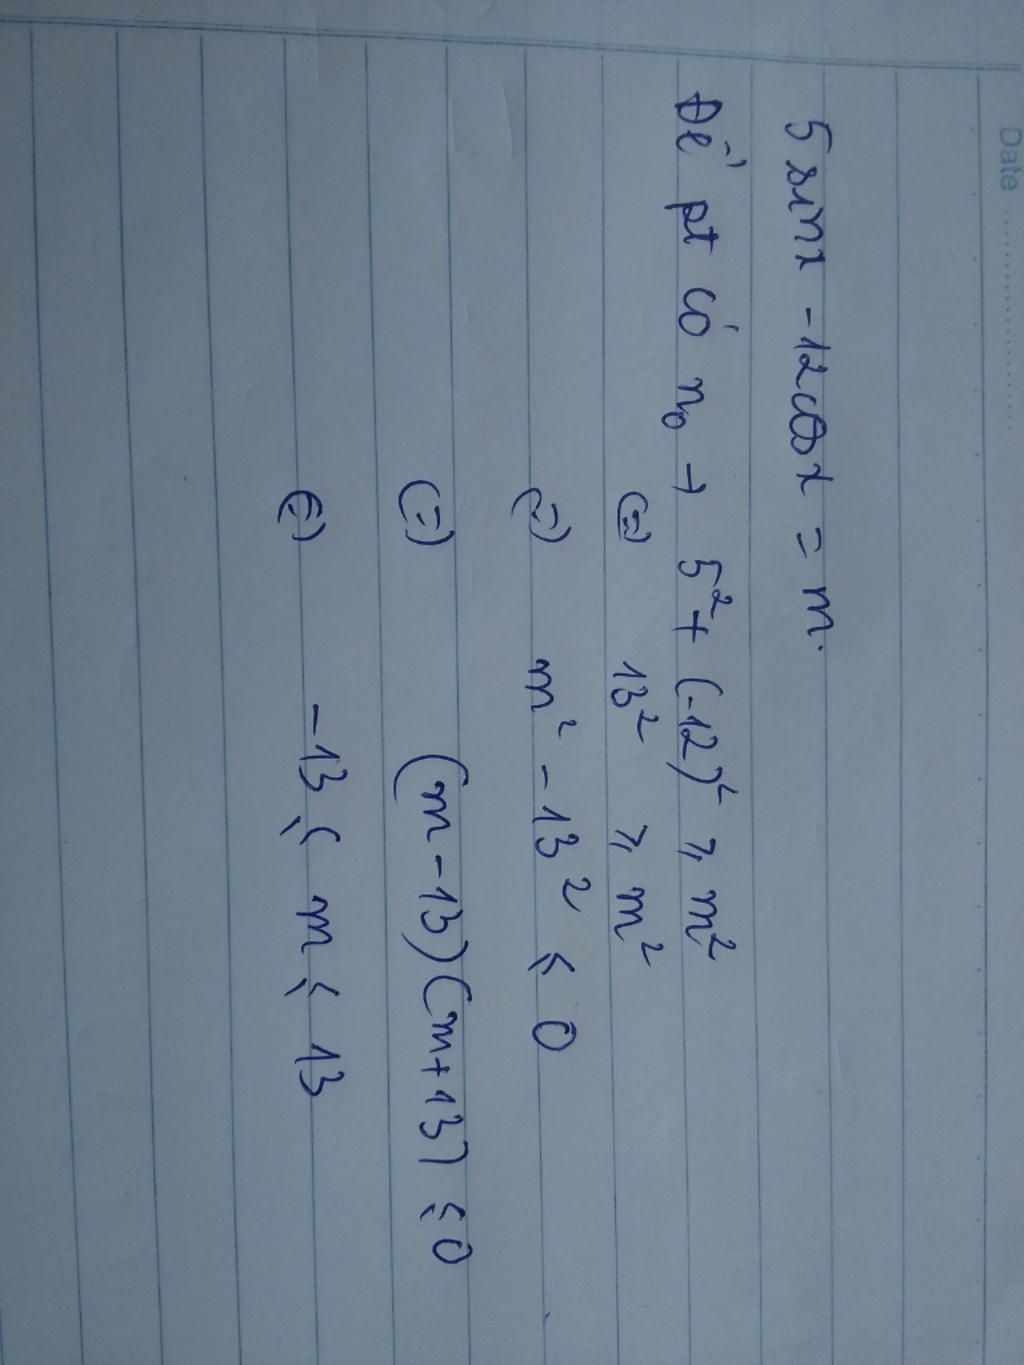 Date ....................
5 sinx - 12cosx = m.
Để pt có n₀ → 5² + (-12)² ⩾ m²
(=) 13² ⩾ m²
(=) m² - 13² ⩽ 0
(=) (m - 13)(m + 13) ⩽ 0
(=) -13 ⩽ m ⩽ 13